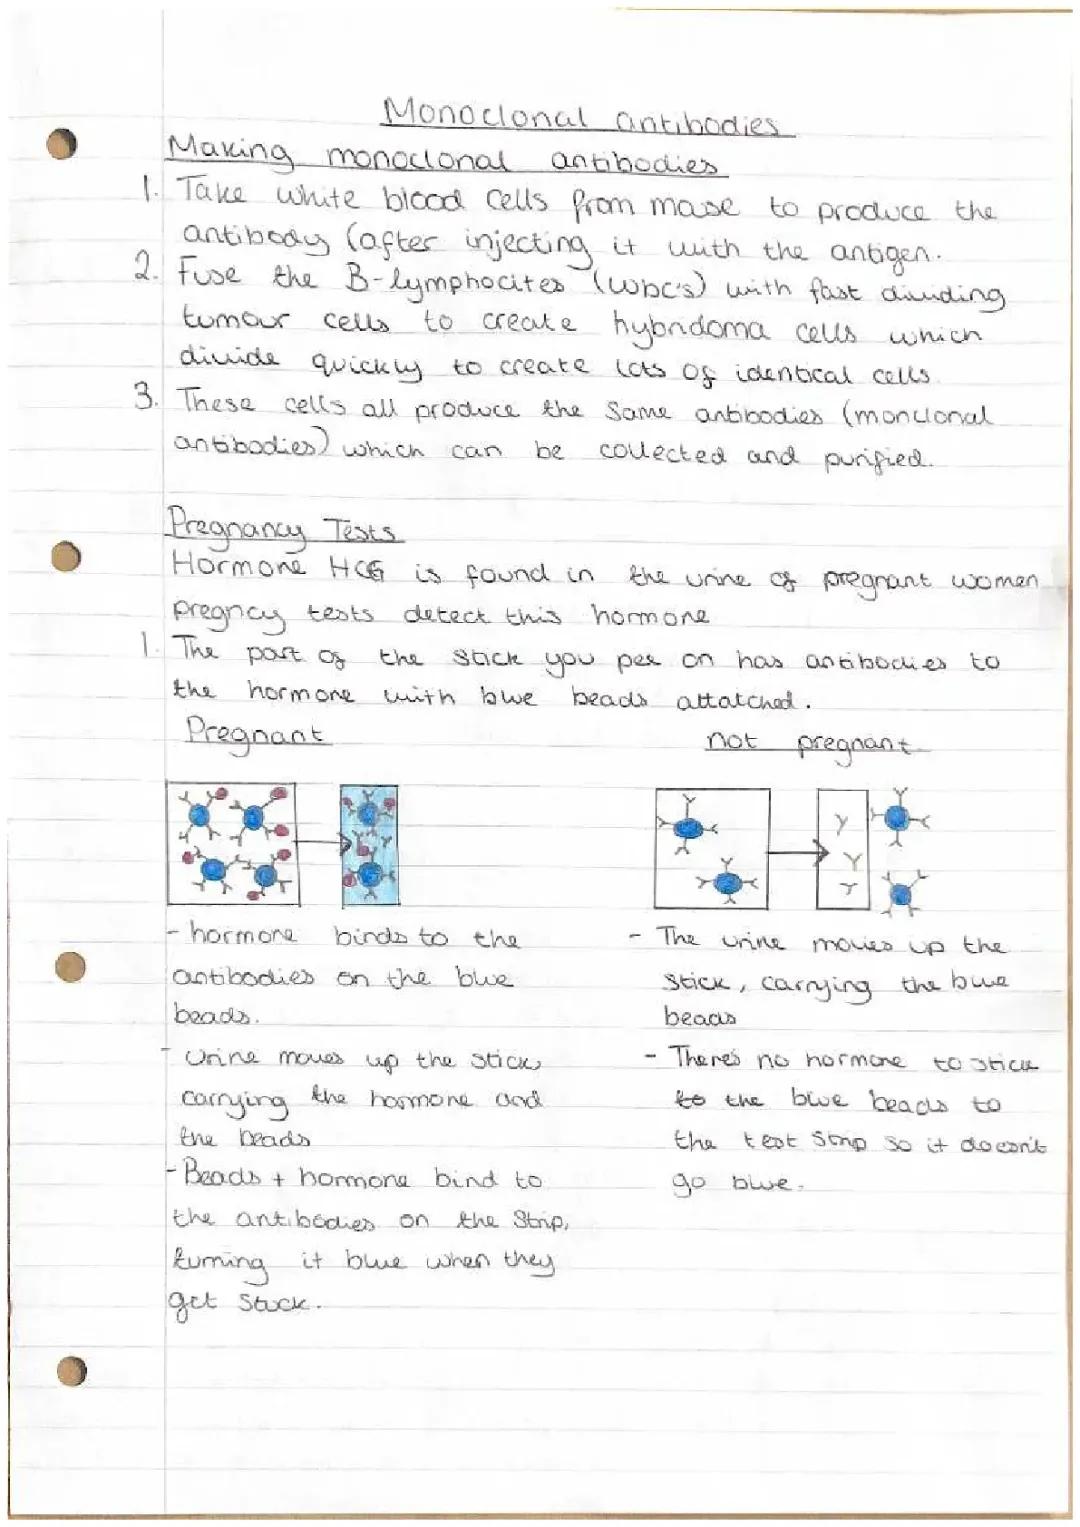 Monoclonal antibodies
Making monoclonal antibodies
1. Take white blood cells from mouse to produce the
antibody (after injecting it with the antigen.
2. Fuse the B-lymphocites (wbc's) with fast dividing
tumour cells to create hybridoma cells which
divide quickly to create lots of identical cells.
3. These cells all produce the same antibodies (monclonal
antibodies) which can be collected and purified.
Pregnancy Tests
Hormone HCG is found in the urine of pregnant women
pregncy tests detect this hormone
1. The part of the stick you pee on has antibodies to
the hormone with blue beads attatched.
Pregnant
- hormone binds to the
antibodies on the blue
beads.
- Urine moves up the stick,
carrying the hormone and
the beads
- Beads + hormone bind to
the antibodies on the strip,
turning it blue when they
get stuck.
not pregnant
- The urine moves up the
stick, carrying the blue
beads
- There's no hormone to stick
to the blue beads to
the test strip so it doesn't
go blue.